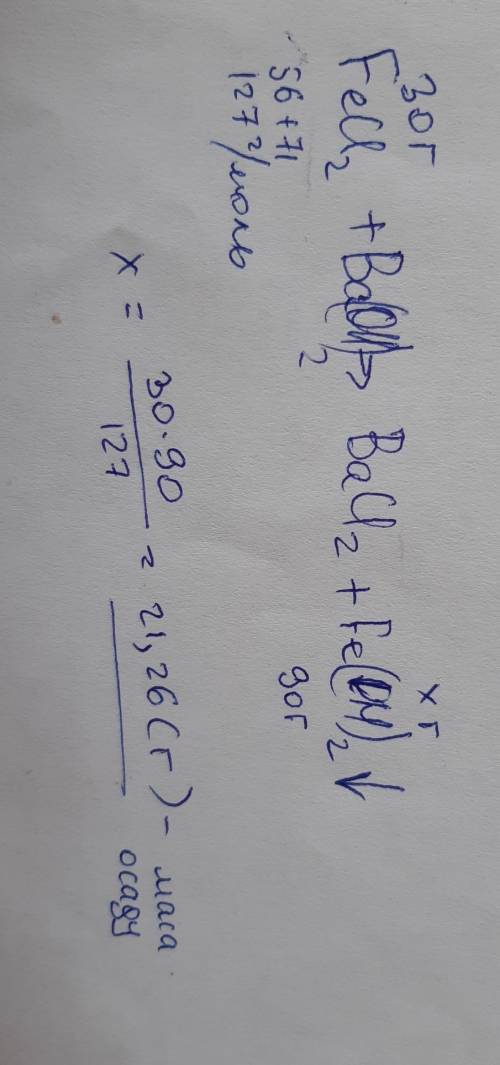 30г хг
FeCl2 + Ba(OH)2 → BaCl2 + Fe(OH)2↓
56+71 90г
127 г/моль
x = 30·90/127 = 21,26 (г) – маса осаду